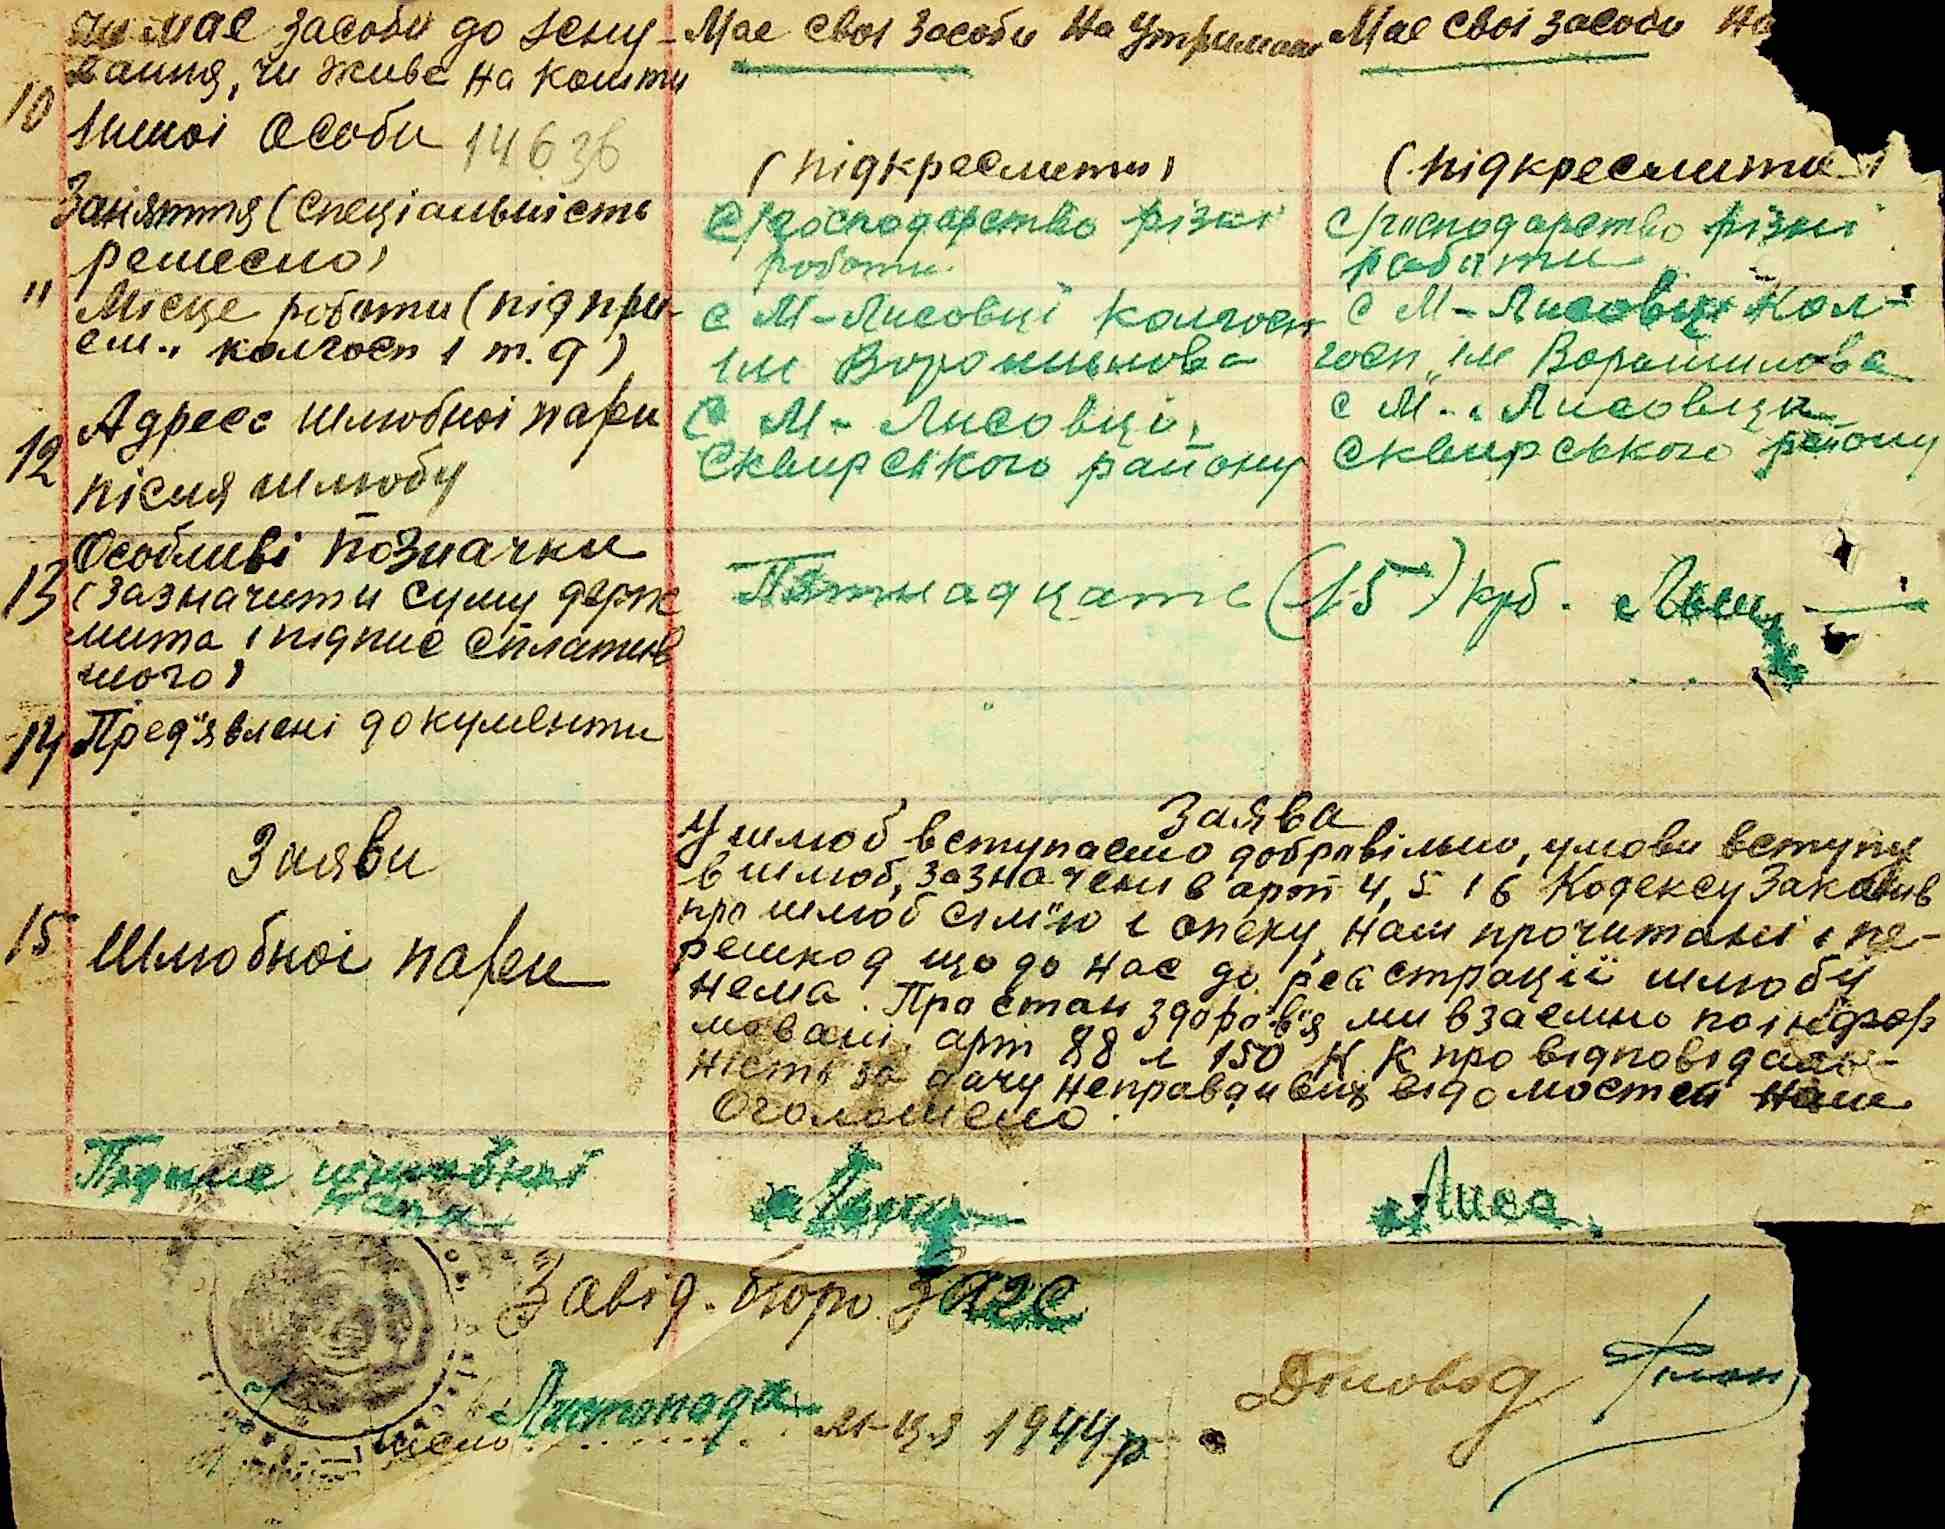 чи має засоби до існу-
вання, чи живе на кошти
10 іншої особи 14636
Має свої засоби на утриман
(підкреслити)
Має свої засоби на
(підкреслити)
11 Заняття (спеціальність
ремесло)
Місце роботи (підпри-
єм., колгосп і т. д)
с/господарство різні
роботи.
с М-Лисовці колгосп
ім Ворошилова
с/господарство різні
работи
с М-Лисовці Кол-
госп ім Ворошилова
12 Адреса шлюбної пари
після шлюбу
с М- Лисовці,
Сквирського району
с М.. Лисовци
Сквирського району
13 Особливі позначки
(зазначити суму держ
мита і підпис сплатив
шого)
Пятнадцать (15) крб.
14 Пред'явлені документи
15 Заяви
Шлюбної пари
Заява
У шлюб вступаємо добровільно, умови вступу
в шлюб, зазначені в арт 4, 5 і 6 Кодексу Законів
про шлюб сім'ю і опеку, нам прочитані і пе-
решкод що до нас до реєстрації шлюбу
нема. Про стан здоров'я ми взаємно поінфор
мовані. арт 88 и 150 К К про відповідаль-
ність за дачу неправдивих відомостей нам
Оголошено.
Підписи шлюбної
пари
Лиса
Завід. бюро ЗАГС
Діловод
число Листопада м-ця 1944 р